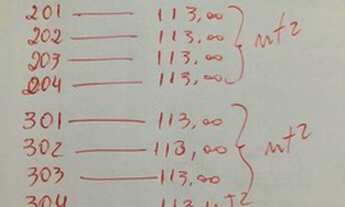 201 — 113,00
202 — 113,00
203 — 113,00
204 — 113,00
mt2
301 — 113,00
302 — 113,00
303 — 113,00
304 — 113,00
mt2